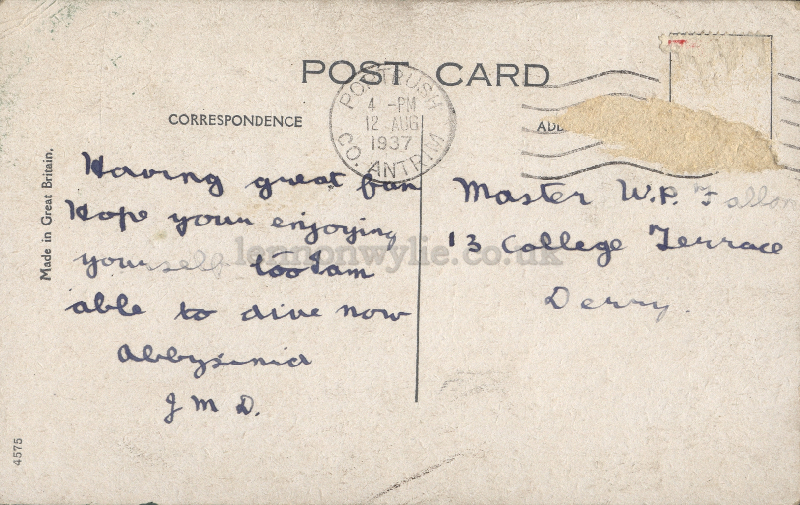 POST CARD
PORTRUSH
4 - PM
12 AUG
1937
CO. ANTRIM
CORRESPONDENCE
Made in Great Britain.
Having great fun
Hope your enjoying
yourself too I am
able to dive now
Abbysinia
J M D.
Master W.P. Fallon
13 College Terrace
Derry.
4575
lennonwylie.co.uk